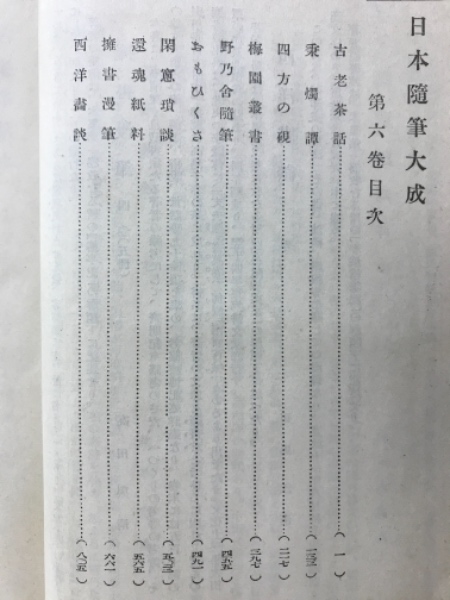 日本隨筆大成
第六卷目次
古老茶話……(一)
秉燭譚……
四方の硯……(二一七)
梅園叢書……(三九七)
野乃舍隨筆……(四五五)
おもひくさ……(四九一)
閑窻瑣談……
還魂紙料……(五六五)
擁書漫筆……(六六一)
西洋畵談……(八〇五)